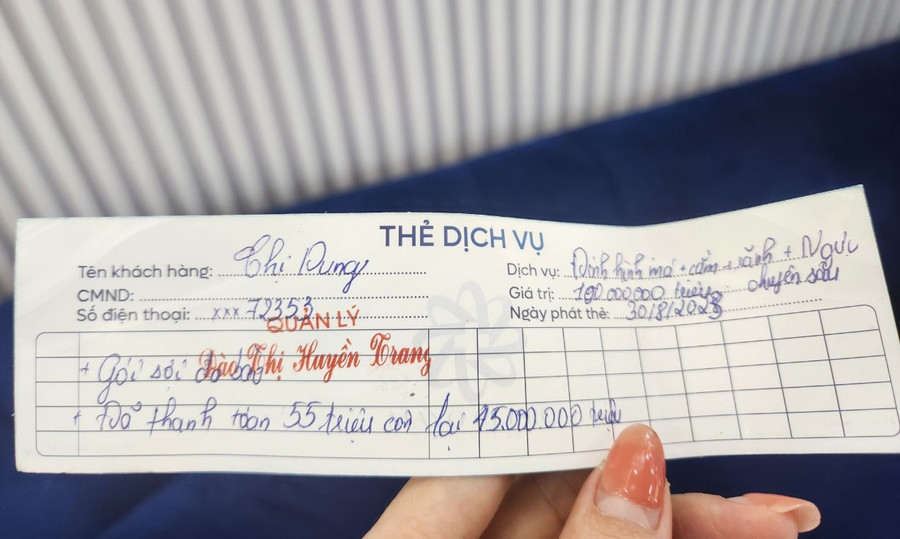 THẺ DỊCH VỤ
Tên khách hàng: Chị Dung
CMND:
Số điện thoại: xxx 72353
Dịch vụ: Định hình má + cằm + rãnh + Ngực
chuyên sâu
Giá trị: 100.000.000 triệu
Ngày phát thẻ: 30/8/2023
QUẢN LÝ
Đào Thị Huyền Trang
+ Gói sợi
+ Đã thanh toán 55 triệu còn lại 45.000.000 triệu